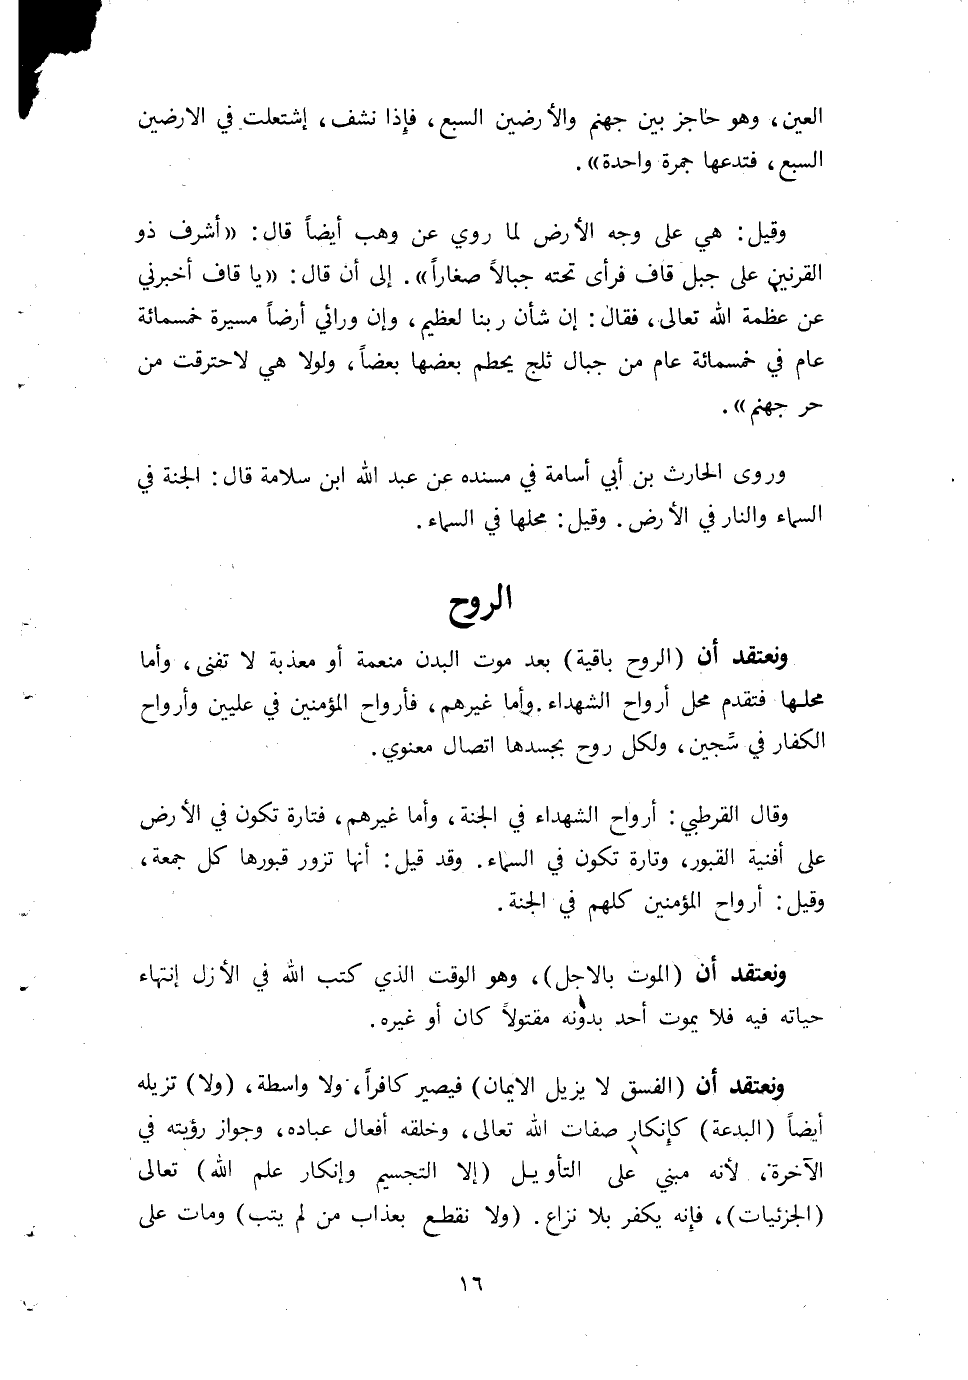 العين، وهو حاجز بين جهنم والأرضين السبع، فإذا نشف، إشتعلت في الارضين
السبع، فتدعها جمرة واحدة».
وقيل: هي على وجه الأرض لما روي عن وهب أيضاً قال: «أشرف ذو
القرنين على جبل قاف فرأى تحته جبالاً صغاراً». إلى أن قال: «يا قاف أخبرني
عن عظمة الله تعالى، فقال: إن شأن ربنا لعظيم، وإن ورائي أرضاً مسيرة خمسمائة
عام في خمسمائة عام من جبال ثلج يحطم بعضها بعضاً، ولولا هي لاحترقت من
حر جهنم».
وروى الحارث بن أبي أسامة في مسنده عن عبد الله ابن سلامة قال: الجنة في
السماء والنار في الأرض. وقيل: محلها في السماء.
الروح
ونعتقد أن (الروح باقية) بعد موت البدن منعمة أو معذبة لا تفنى، وأما
محلها فتقدم محل أرواح الشهداء. وأما غيرهم، فأرواح المؤمنين في عليين وأرواح
الكفار في سَّجين، ولكل روح بجسدها اتصال معنوي.
وقال القرطبي: أرواح الشهداء في الجنة، وأما غيرهم، فتارة تكون في الأرض
على أفنية القبور، وتارة تكون في السماء. وقد قيل: أنها تزور قبورها كل جمعة،
وقيل: أرواح المؤمنين كلهم في الجنة.
ونعتقد أن (الموت بالاجل)، وهو الوقت الذي كتب الله في الأزل إنتهاء
حياته فيه فلا يموت أحد بدونه مقتولاً كان أو غيره.
ونعتقد أن (الفسق لا يزيل الايمان) فيصير كافراً، ولا واسطة، (ولا) تزيله
أيضاً (البدعة) كإنكار صفات الله تعالى، وخلقه أفعال عباده، وجواز رؤيته في
الآخرة، لأنه مبني على التأويل (إلا التجسيم وإنكار علم الله) تعالى
(الجزئيات)، فإنه يكفر بلا نزاع. (ولا نقطع بعذاب من لم يتب) ومات على
١٦